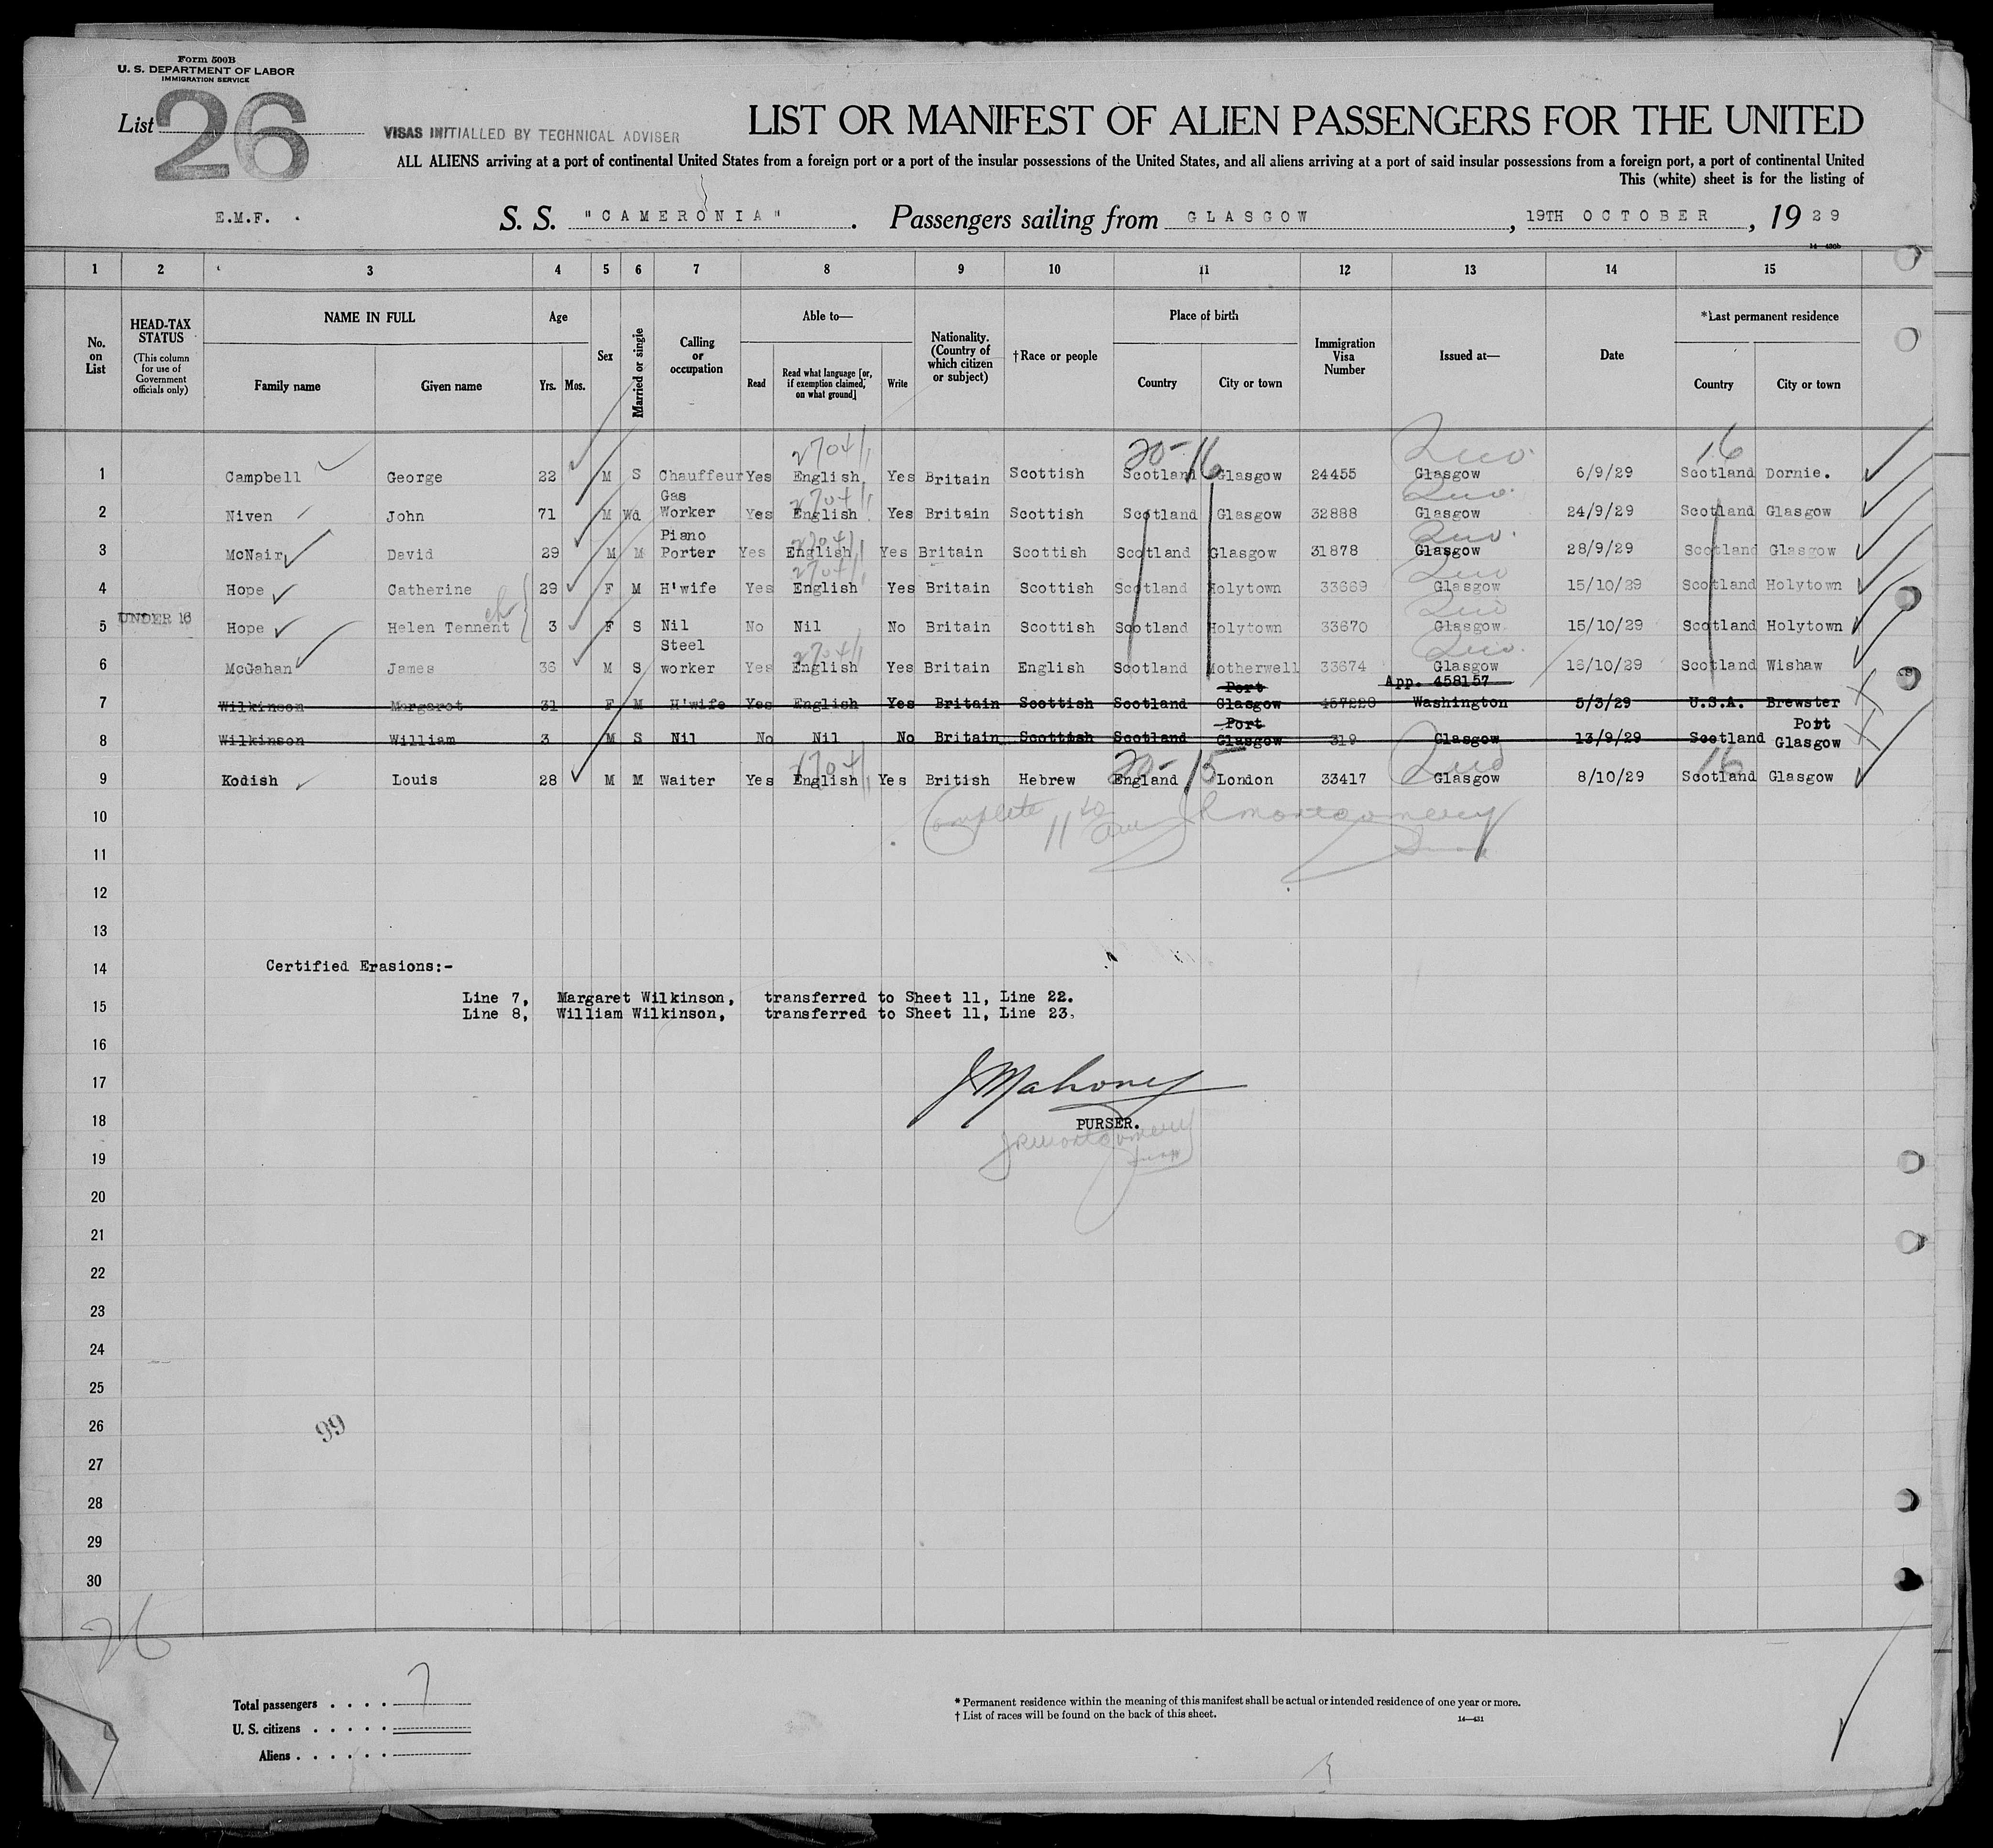 Form 500B
U. S. DEPARTMENT OF LABOR
IMMIGRATION SERVICE
List 26
VISAS INITIALLED BY TECHNICAL ADVISER
LIST OR MANIFEST OF ALIEN PASSENGERS FOR THE UNITED
ALL ALIENS arriving at a port of continental United States from a foreign port or a port of the insular possessions of the United States, and all aliens arriving at a port of said insular possessions from a foreign port, a port of continental United
This (white) sheet is for the listing of
E.M.F. S. S. "CAMERONIA". Passengers sailing from GLASGOW, 19TH OCTOBER, 1929
14—430b
1 2 3 4 5 6 7 8 9 10 11 12 13 14 15
No. on List
HEAD-TAX STATUS (This column for use of Government officials only)
NAME IN FULL
Family name Given name
Age
Yrs. Mos.
Sex
Married or single
Calling or occupation
Able to—
Read Read what language [or, if exemption claimed, on what ground] Write
Nationality. (Country of which citizen or subject)
†Race or people
Place of birth
Country City or town
Immigration Visa Number
Issued at—
Date
*Last permanent residence
Country City or town
2704 20-16 Quo. 16
1 Campbell George 22 M S Chauffeur Yes English Yes Britain Scottish Scotland Glasgow 24455 Glasgow 6/9/29 Scotland Dornie.
2704 Quo.
2 Niven John 71 M Wd Gas Worker Yes English Yes Britain Scottish Scotland Glasgow 32888 Glasgow 24/9/29 Scotland Glasgow
2704 Quo.
3 McNair David 29 M M Piano Porter Yes English Yes Britain Scottish Scotland Glasgow 31878 Glasgow 28/9/29 Scotland Glasgow
2704 Quo
4 Hope Catherine 29 F M H'wife Yes English Yes Britain Scottish Scotland Holytown 33669 Glasgow 15/10/29 Scotland Holytown
ch Quo
5 UNDER 16 Hope Helen Tennent 3 F S Nil No Nil No Britain Scottish Scotland Holytown 33670 Glasgow 15/10/29 Scotland Holytown
2704 Quo.
6 McGahan James 36 M S Steel worker Yes English Yes Britain English Scotland Motherwell 33674 Glasgow 16/10/29 Scotland Wishaw
App. 458157
7 Wilkinson Margaret 31 F M H'wife Yes English Yes Britain Scottish Scotland Port Glasgow 457228 Washington 5/3/29 U.S.A. Brewster
8 Wilkinson William 3 M S Nil No Nil No Britain Scottish Scotland Port Glasgow 319 Glasgow 13/9/29 Scotland Port Glasgow
2704 20-15 Quo 16
9 Kodish Louis 28 M M Waiter Yes English Yes British Hebrew England London 33417 Glasgow 8/10/29 Scotland Glasgow
10 Complete 11 JRMontgomery
11
12
13
14 Certified Erasions:-
15 Line 7, Margaret Wilkinson, transferred to Sheet 11, Line 22.
Line 8, William Wilkinson, transferred to Sheet 11, Line 23.
16
17 J Mahoney
18 PURSER.
19 JRMontgomery
20
21
22
23
24
25
26
99
27
28
29
30
26
Total passengers . . . . 7
U. S. citizens . . . . .
Aliens . . . . . .
* Permanent residence within the meaning of this manifest shall be actual or intended residence of one year or more.
† List of races will be found on the back of this sheet.
14—431